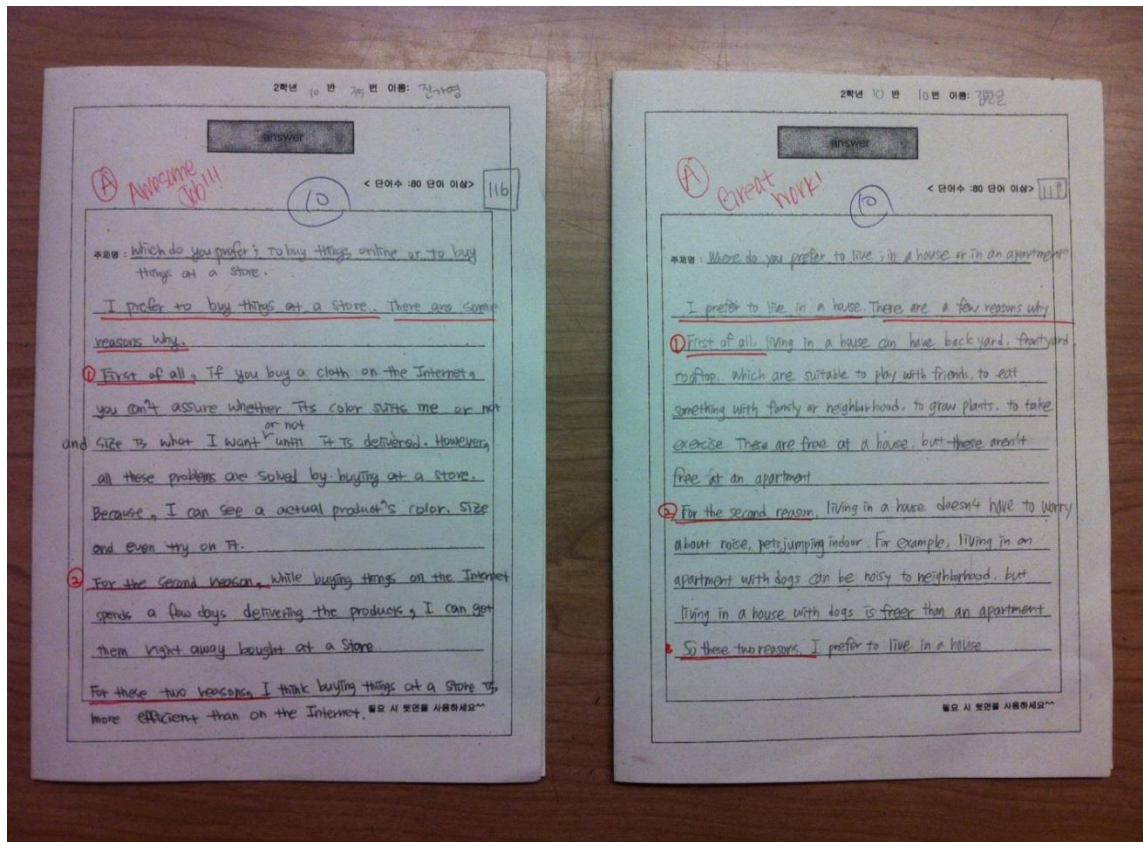 2학년 10 반 25 번 이름: 진가영
answer
A Awesome Job!!!
10
< 단어수 :80 단어 이상> 116
주제명 : Which do you prefer; To buy things online or to buy
things at a store.
I prefer to buy things at a store. There are some
reasons why.
① First of all, if you buy a cloth on the Internet,
you can't assure whether its color suits me or not
or not
and size is what I want until it is delivered. However,
all these problems are solved by buying at a store.
Because, I can see a actual product's color, size
and even try on it.
② For the second reason, while buying things on the Internet
spends a few days delivering the products, I can get
them right away bought at a store.
For these two reasons, I think buying things at a store is
more efficient than on the Internet.
필요 시 뒷면을 사용하세요^^
2학년 10 반 10 번 이름:
answer
A Great work!
10
< 단어수 :80 단어 이상>
주제명 : Where do you prefer to live ; in a house or in an apartment
I prefer to live in a house. There are a few reasons why
① First of all, living in a house can have back yard, frontyard
rooftop. which are suitable to play with friends, to eat
something with family or neighborhood, to grow plants, to take
exercise. These are free at a house, but these aren't
free at an apartment
② For the second reason, living in a house doesn't have to worry
about noise, pets, jumping indoor. For example, living in an
apartment with dogs can be noisy to neighborhood, but
living in a house with dogs is freer than an apartment
So these two reasons, I prefer to live in a house
필요 시 뒷면을 사용하세요^^